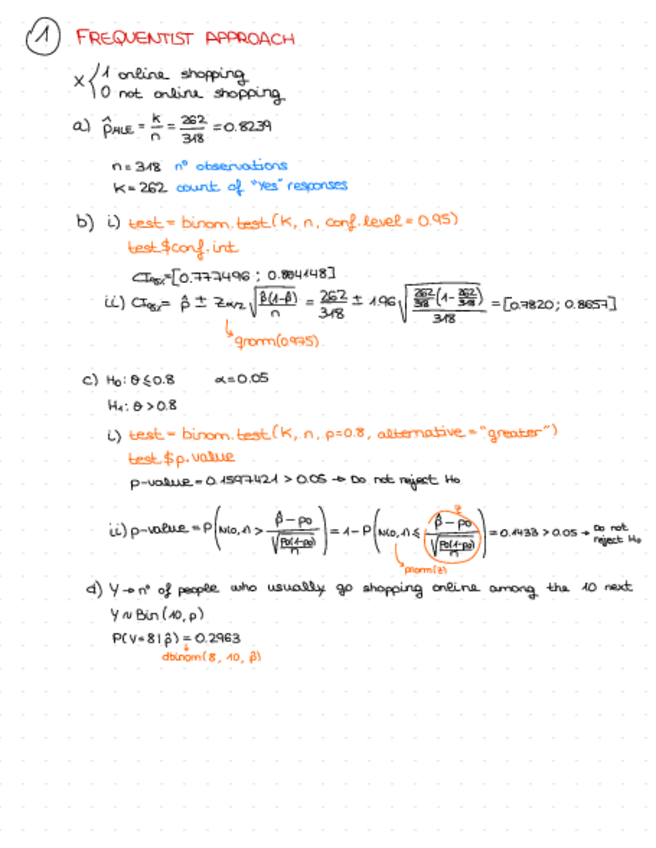 1 FREQUENTIST APPROACH
X { 1 online shopping
0 not online shopping
a) p̂MLE = k/n = 262/318 = 0.8239
n = 318 nº observations
K = 262 count of "Yes" responses
b) i) test = binom.test(K, n, conf.level = 0.95)
test$conf.int
CI95% = [0.777496 ; 
ii) CI95% = p̂ ± Zα/2 √(p̂(1-p̂)/n) = 262/318 ± 1.96 √(262/318(1-262/318)/318) = [0.7820; 0.8657]
qnorm(0.975)
c) H0: θ ≤ 0.8 α = 0.05
H1: θ > 0.8
i) test = binom.test(K, n, p=0.8, alternative = "greater")
test$p.value
p-value = 0.1597421 > 0.05 → Do not reject H0
ii) p-value = P(N(0,1) > (p̂-p0)/√(p0(1-p0)/n)) = 1-P(N(0,1) ≤ (p̂-p0)/√(p0(1-p0)/n)) = 0.1433 > 0.05 → Do not reject H0
pnorm(z)
d) Y → nº of people who usually go shopping online among the 10 next
Y ~ Bin(10, p)
P(Y=8|p̂) = 0.2963
dbinom(8, 10, p̂)